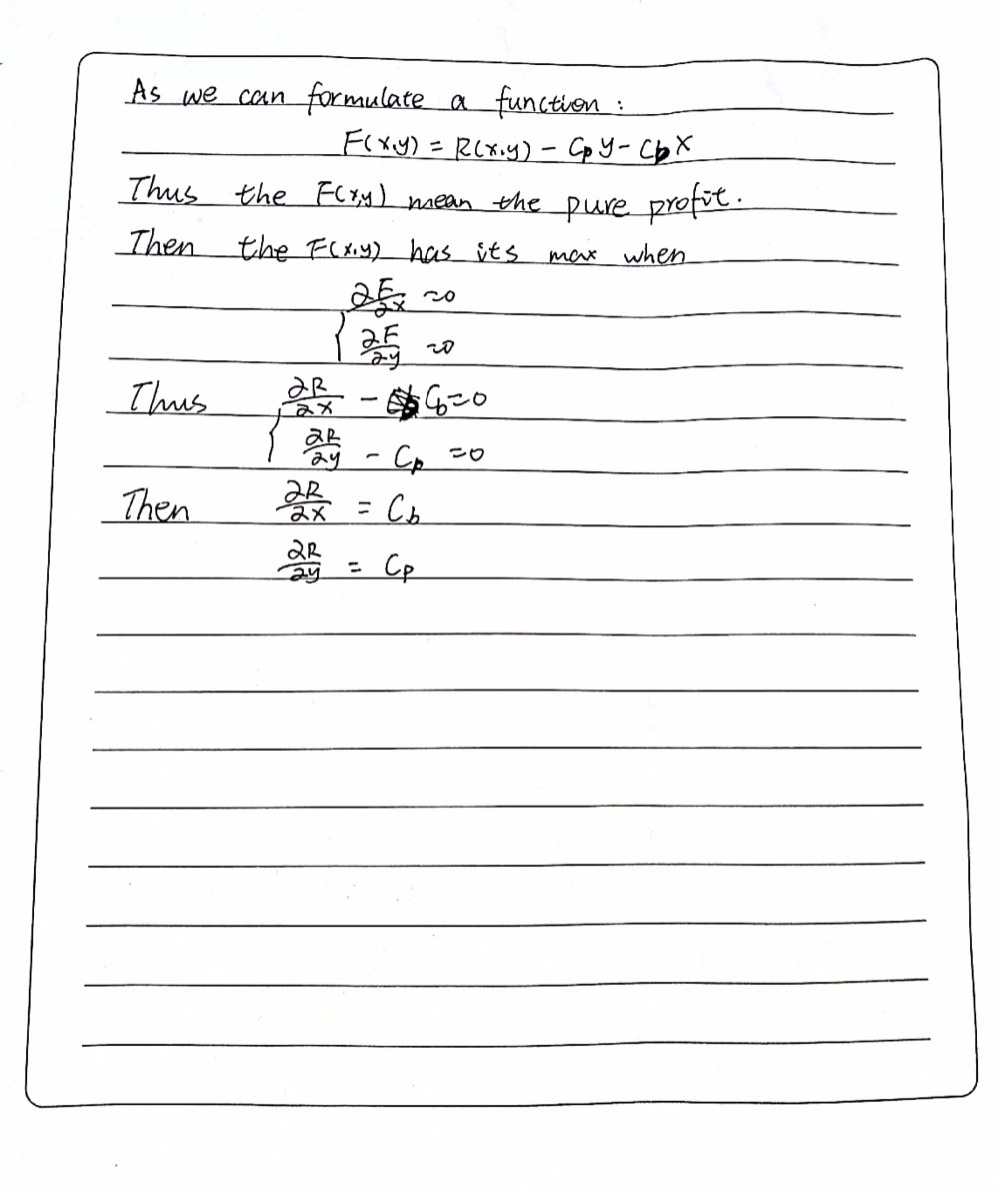 As we can formulate a function :
F(x,y) = R(x,y) - Cp y - Cb x
Thus the F(x,y) mean the pure profit.
Then the F(x,y) has its max when
{ ∂F/∂x = 0
∂F/∂y = 0
Thus { ∂R/∂x - Cb = 0
∂R/∂y - Cp = 0
Then ∂R/∂x = Cb
∂R/∂y = Cp